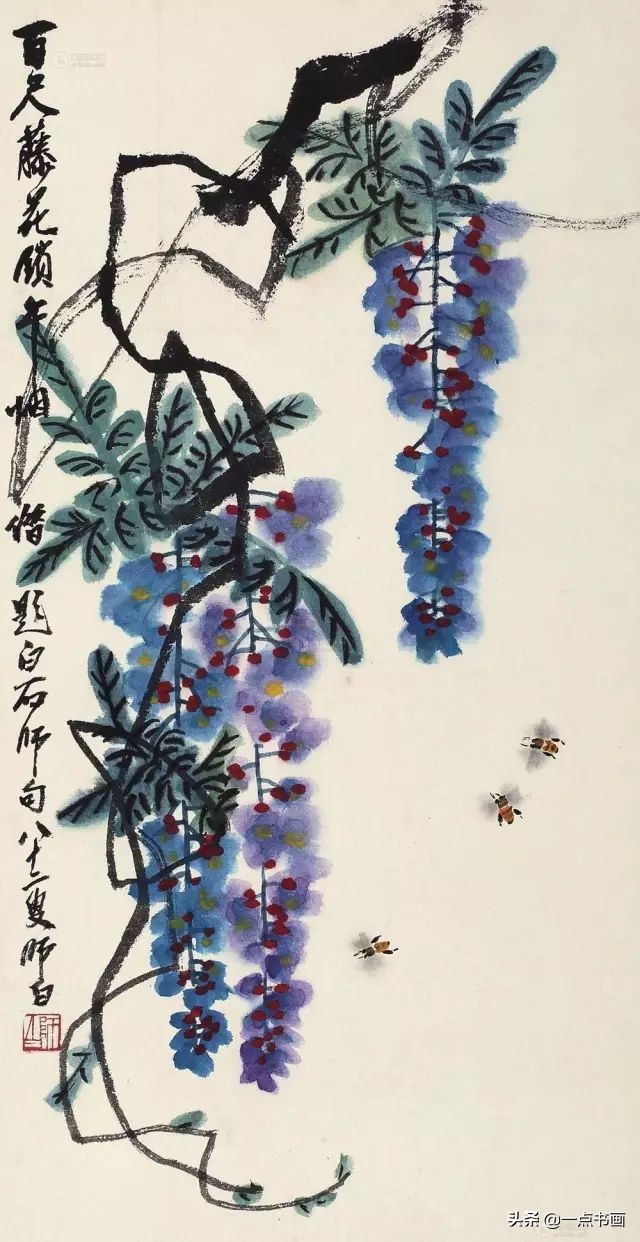 百尺藤花鎖午烟 借题白石师句八十二叟师白
头条 @一点书画